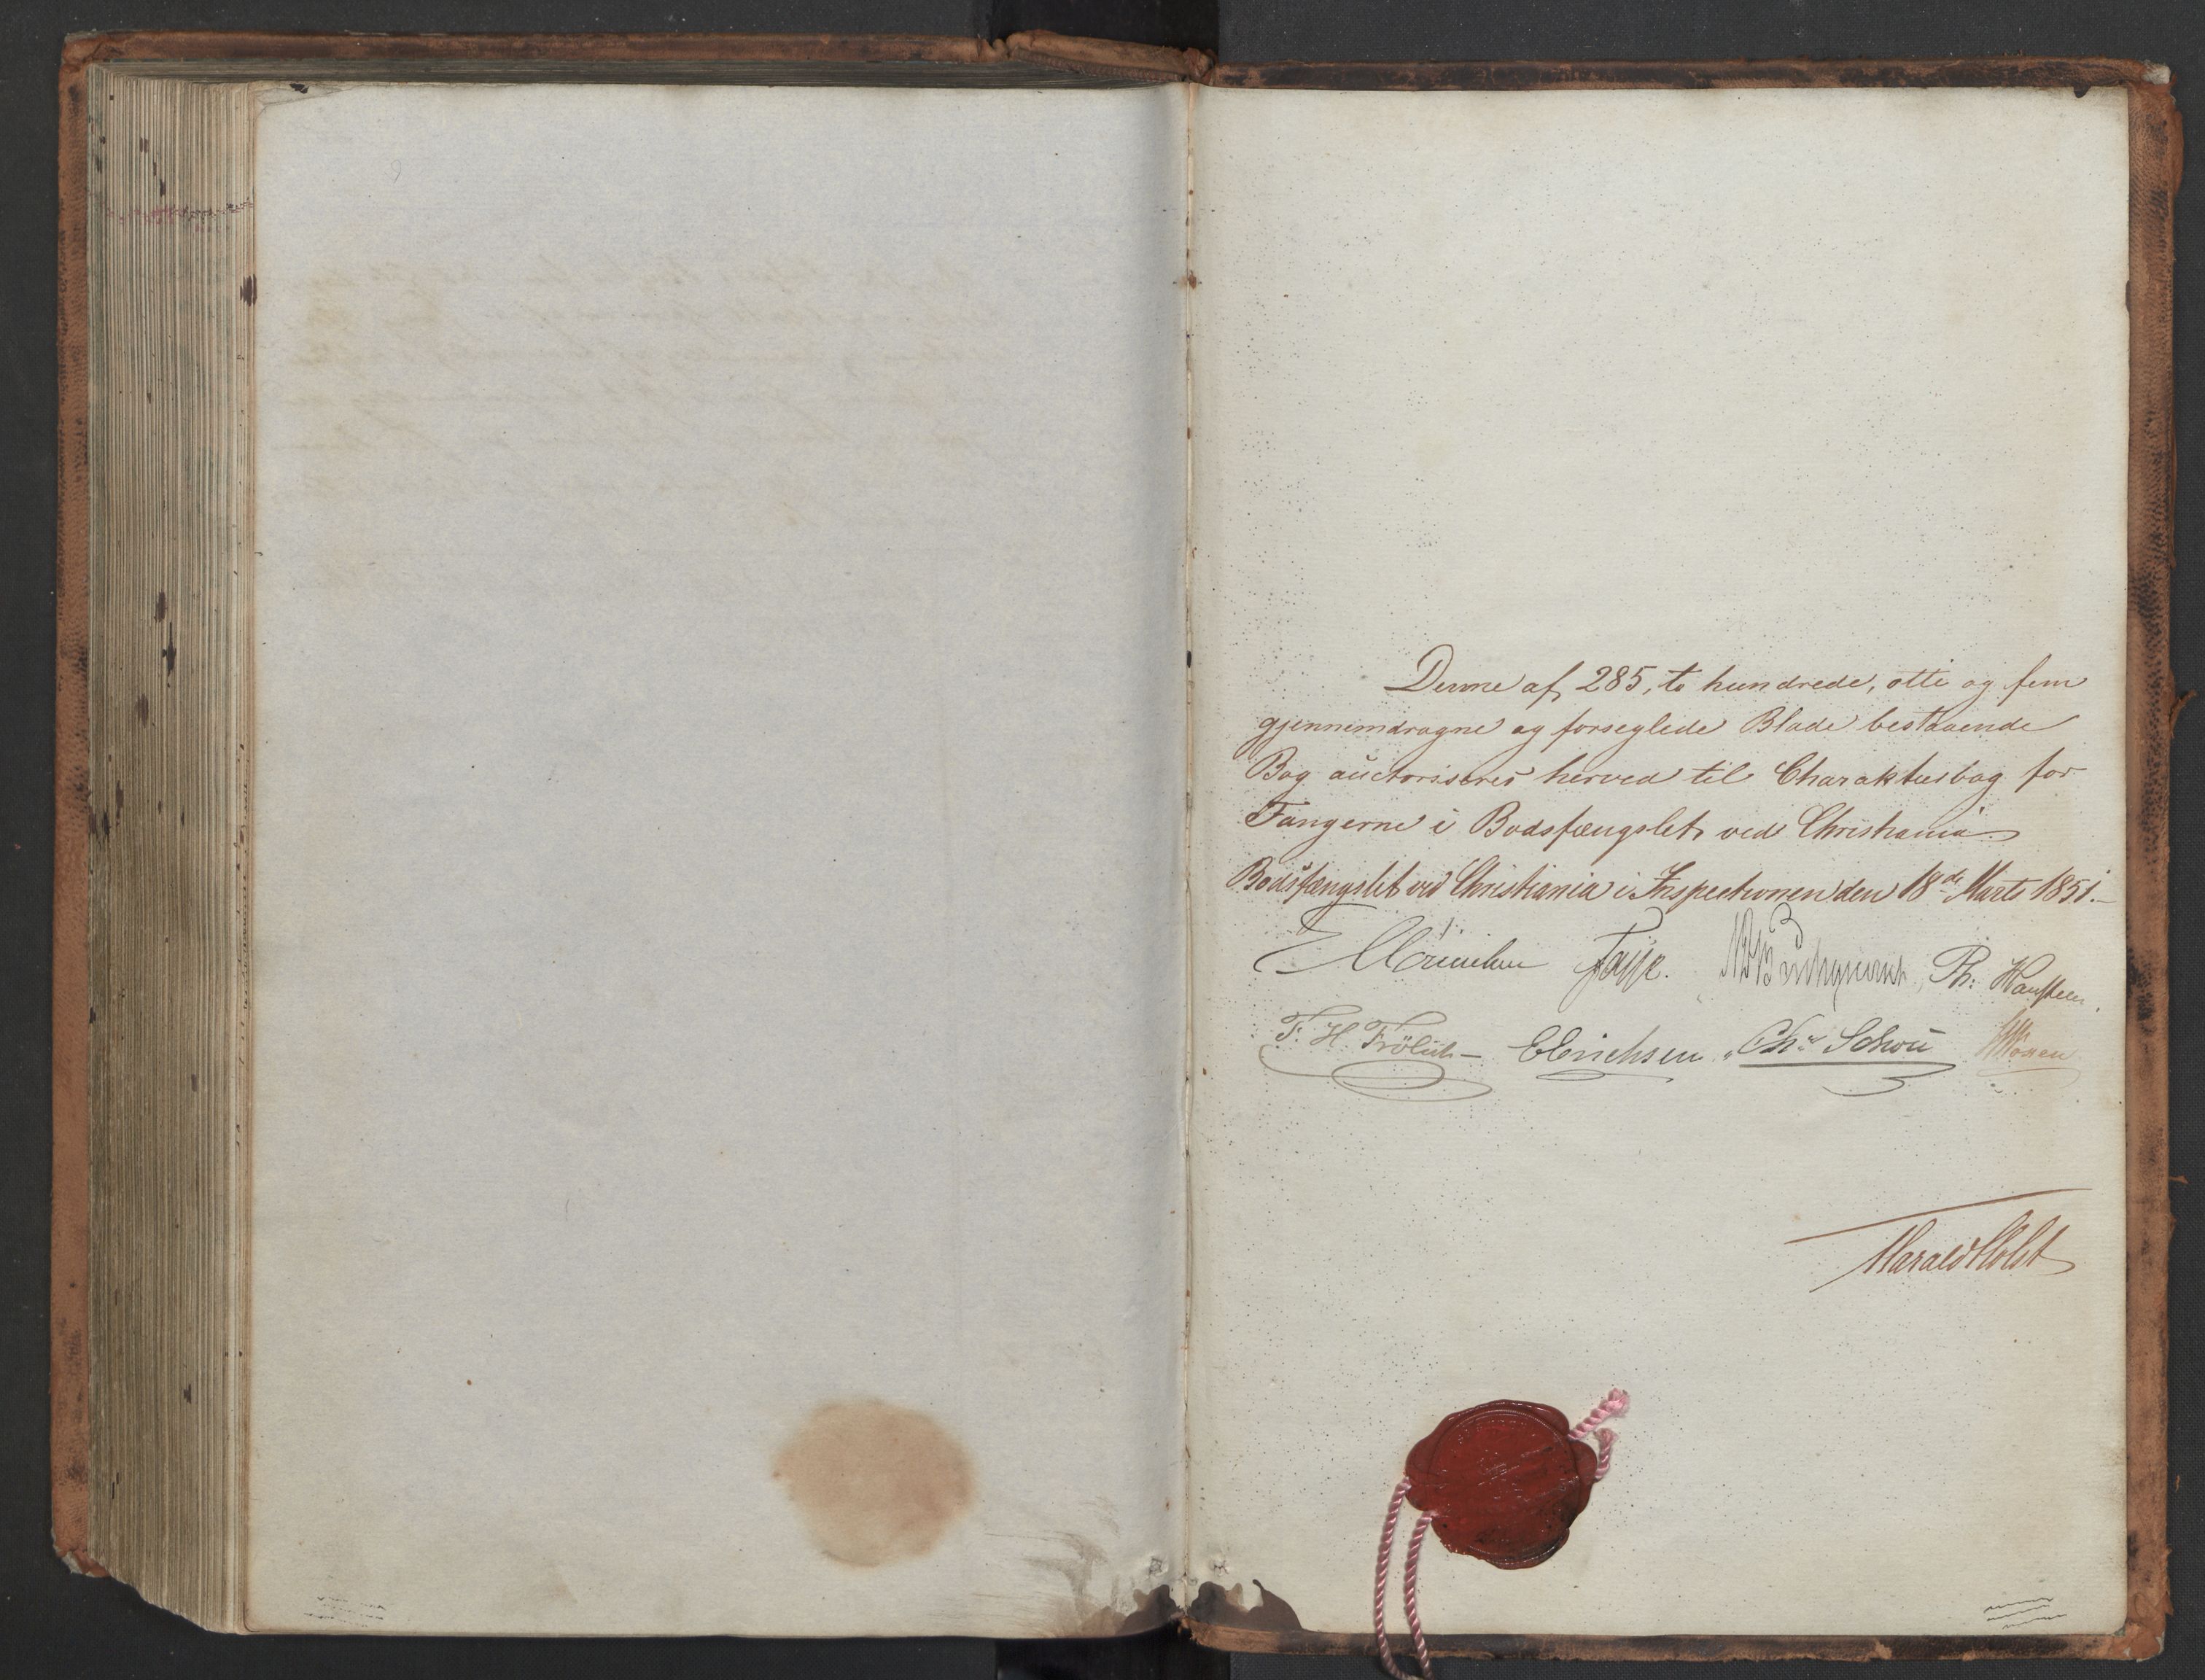 Denne af 285, to hundrede, otti og fem
gjennemdragne og forseglede Blade bestaaende
Bog auctoriseres herved til Charakteerbog for
Fangerne i Bodsfængslet ved Christiania
Bodsfængslet ved Christiania i Inspectionen den 18de Marts 1851.
Faye. Ph: Hansteen
F. H. Frölich Chr Schou
Harald Holst